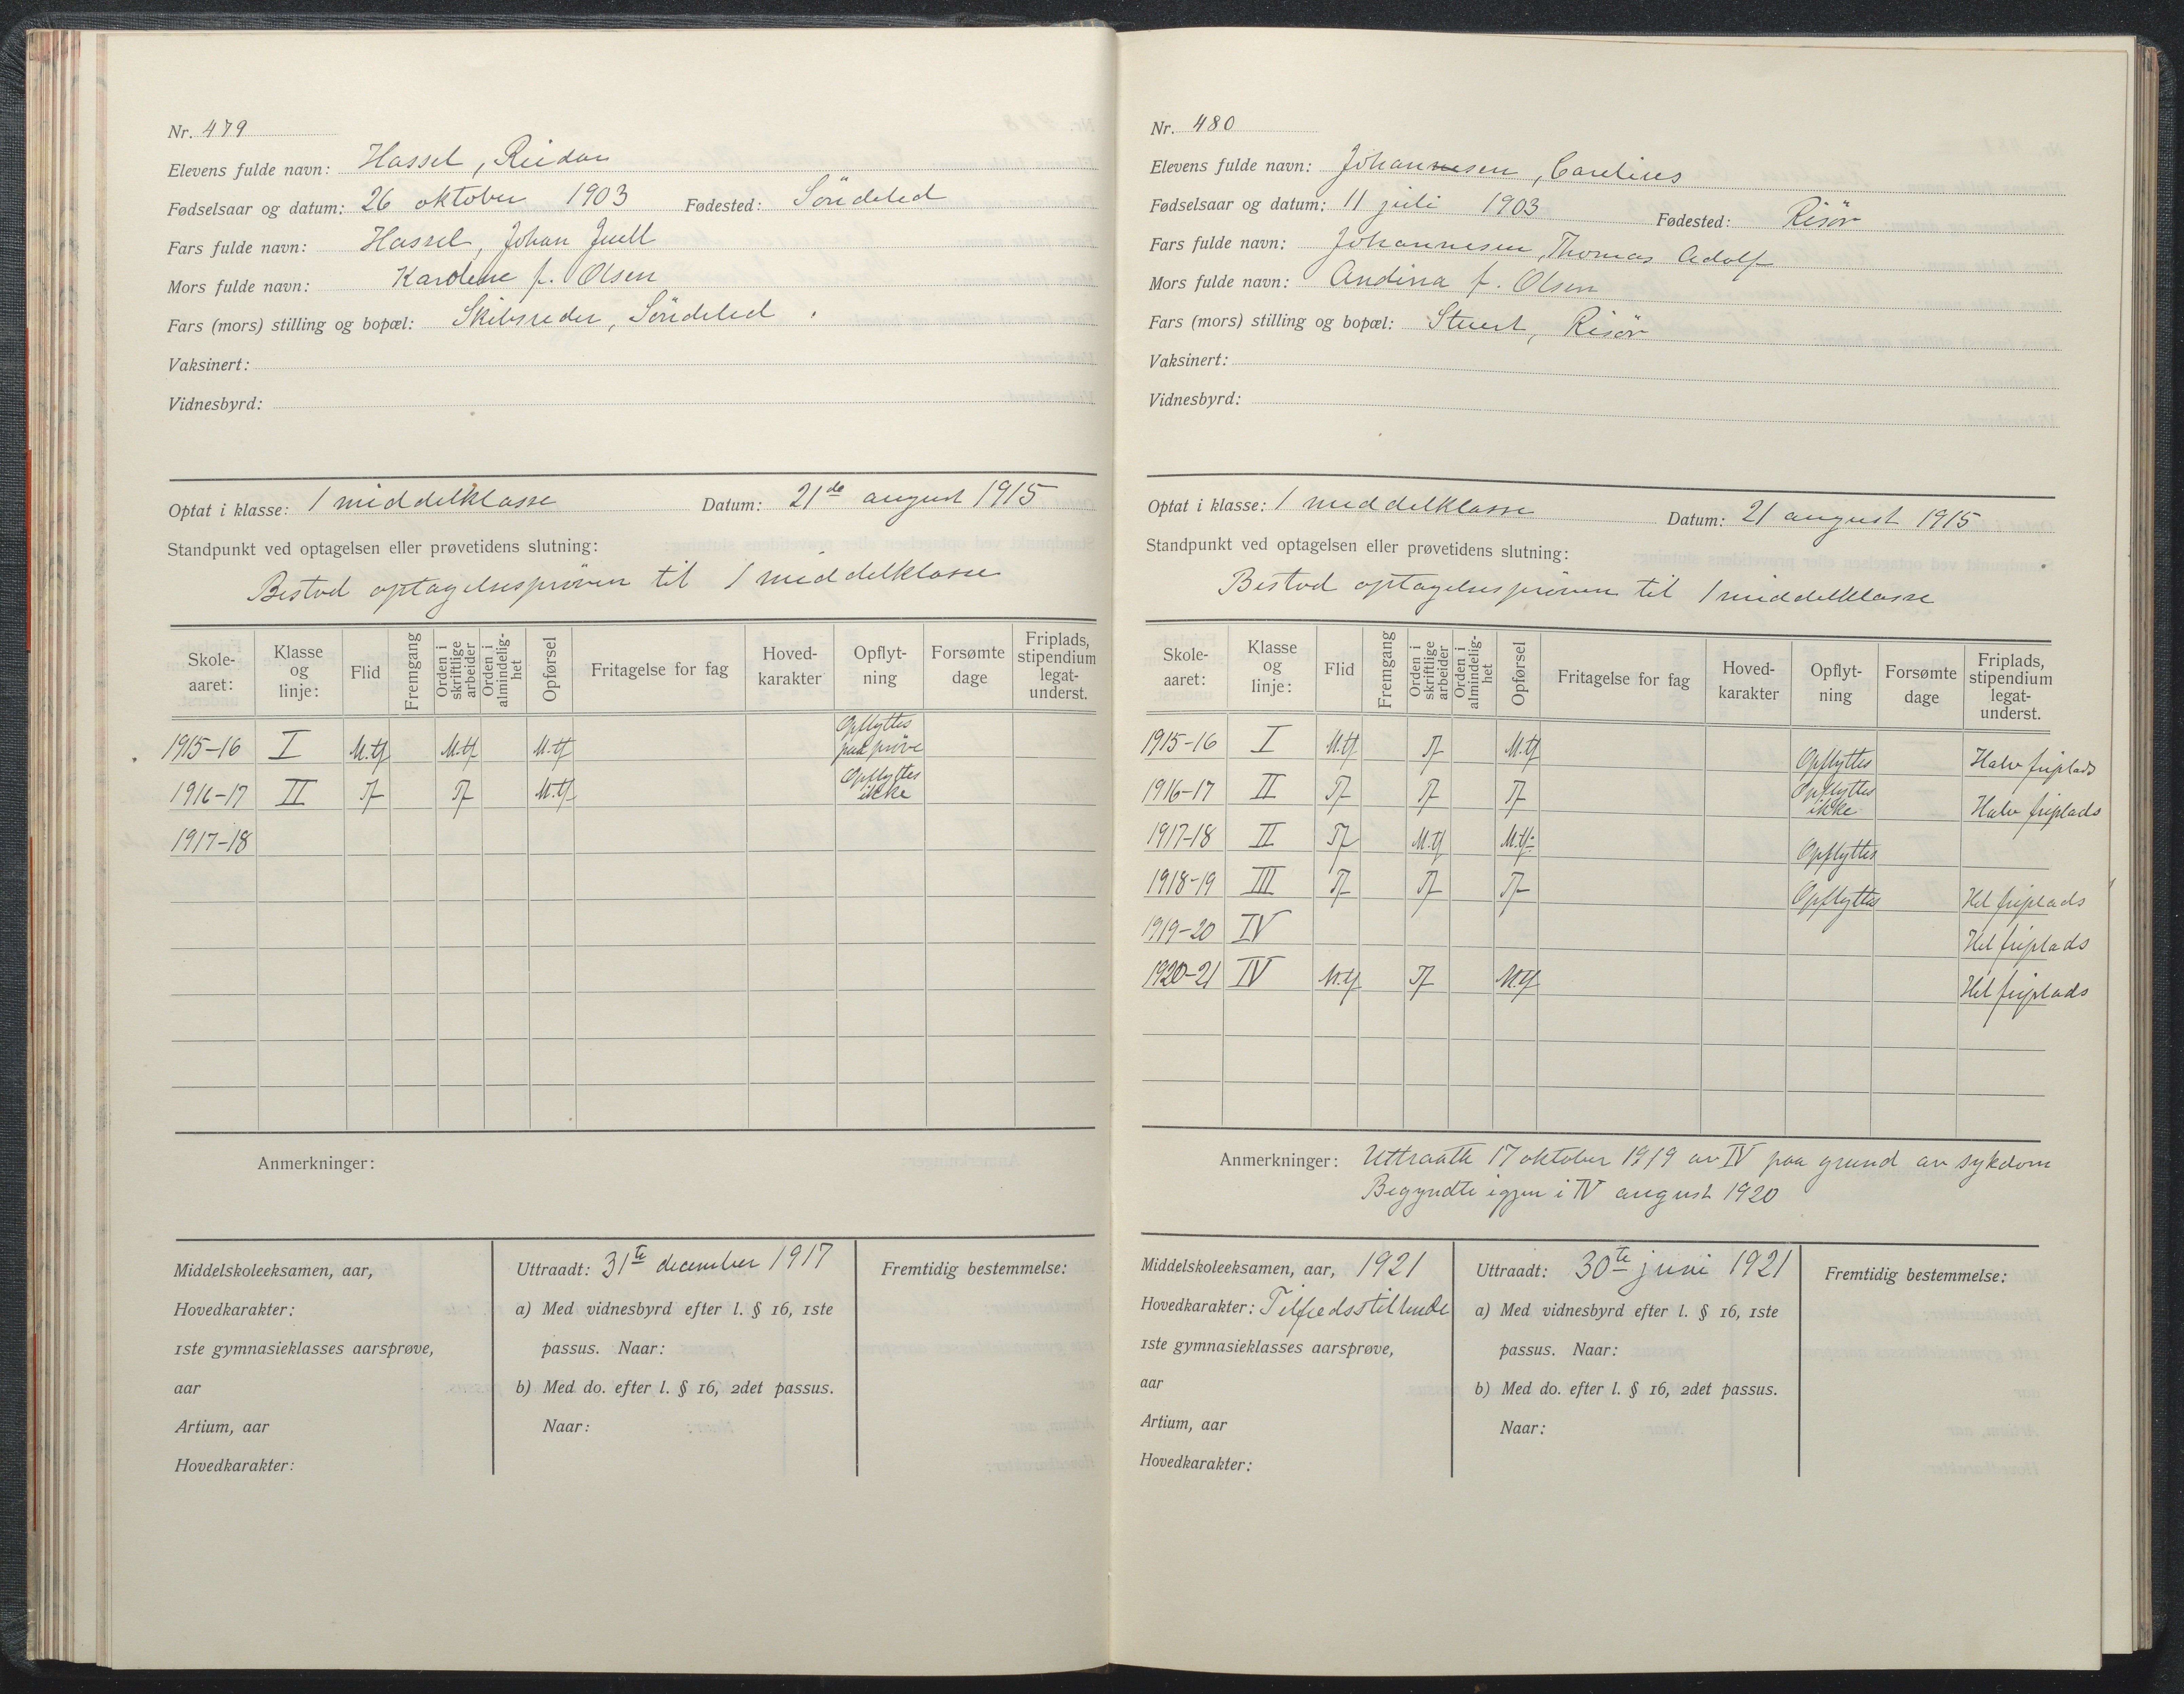 Nr. 479
Elevens fulde navn: Hassel, Reidar
Fødselsaar og datum: 26 oktober 1903 Fødested: Söndeled
Fars fulde navn: Hassel, Johan Juell
Mors fulde navn: Karolene f. Olsen
Fars (mors) stilling og bopæl: Skibsreder, Söndeled.
Vaksinert:
Vidnesbyrd:
Optat i klasse: 1 middelklasse Datum: 21de august 1915
Standpunkt ved optagelsen eller prøvetidens slutning:
Bestod optagelsespröven til 1 middelklasse
Skoleaaret: Klasse og linje: Flid Fremgang Orden i skriftlige arbeider Orden i almindelighet Opførsel Fritagelse for fag Hovedkarakter Opflytning Forsømte dage Friplads, stipendium legatunderst.
1915-16 I M.tf M.tf M.tf Opflyttes paa pröve
1916-17 II Tf Tf M.tf Opflyttes ikke
1917-18
Anmerkninger:
Middelskoleeksamen, aar,
Hovedkarakter:
1ste gymnasieklasses aarsprøve,
aar
Artium, aar
Hovedkarakter:
Uttraadt: 31te december 1917
a) Med vidnesbyrd efter l. § 16, 1ste
passus. Naar:
b) Med do. efter l. § 16, 2det passus.
Naar:
Fremtidig bestemmelse:
Nr. 480
Elevens fulde navn: Johannesen, Carelius
Fødselsaar og datum: 11 juli 1903 Fødested: Risör
Fars fulde navn: Johannesen, Thomas Adolf
Mors fulde navn: Andina f. Olsen
Fars (mors) stilling og bopæl: Stuert, Risör
Vaksinert:
Vidnesbyrd:
Optat i klasse: 1 middelklasse Datum: 21 august 1915
Standpunkt ved optagelsen eller prøvetidens slutning:
Bestod optagelsespröven til 1 middelklasse
Skoleaaret: Klasse og linje: Flid Fremgang Orden i skriftlige arbeider Orden i almindelighet Opførsel Fritagelse for fag Hovedkarakter Opflytning Forsømte dage Friplads, stipendium legatunderst.
1915-16 I M.tf Tf M.tf Opflyttes Halv friplads
1916-17 II Tf Tf Tf Opflyttes ikke Halv friplads
1917-18 II Tf M.tf M.tf. Opflyttes
1918-19 III Tf Tf Tf Opflyttes Hel friplads
1919-20 IV Hel friplads
1920-21 IV M.tf Tf M.tf Hel friplads
Anmerkninger: Uttraatte 17 oktober 1919 av IV paa grund av sykdom
Begyndte igjen i IV august 1920
Middelskoleeksamen, aar, 1921
Hovedkarakter: Tilfredsstillende
1ste gymnasieklasses aarsprøve,
aar
Artium, aar
Hovedkarakter:
Uttraadt: 30te juni 1921
a) Med vidnesbyrd efter l. § 16, 1ste
passus. Naar:
b) Med do. efter l. § 16, 2det passus.
Naar:
Fremtidig bestemmelse: